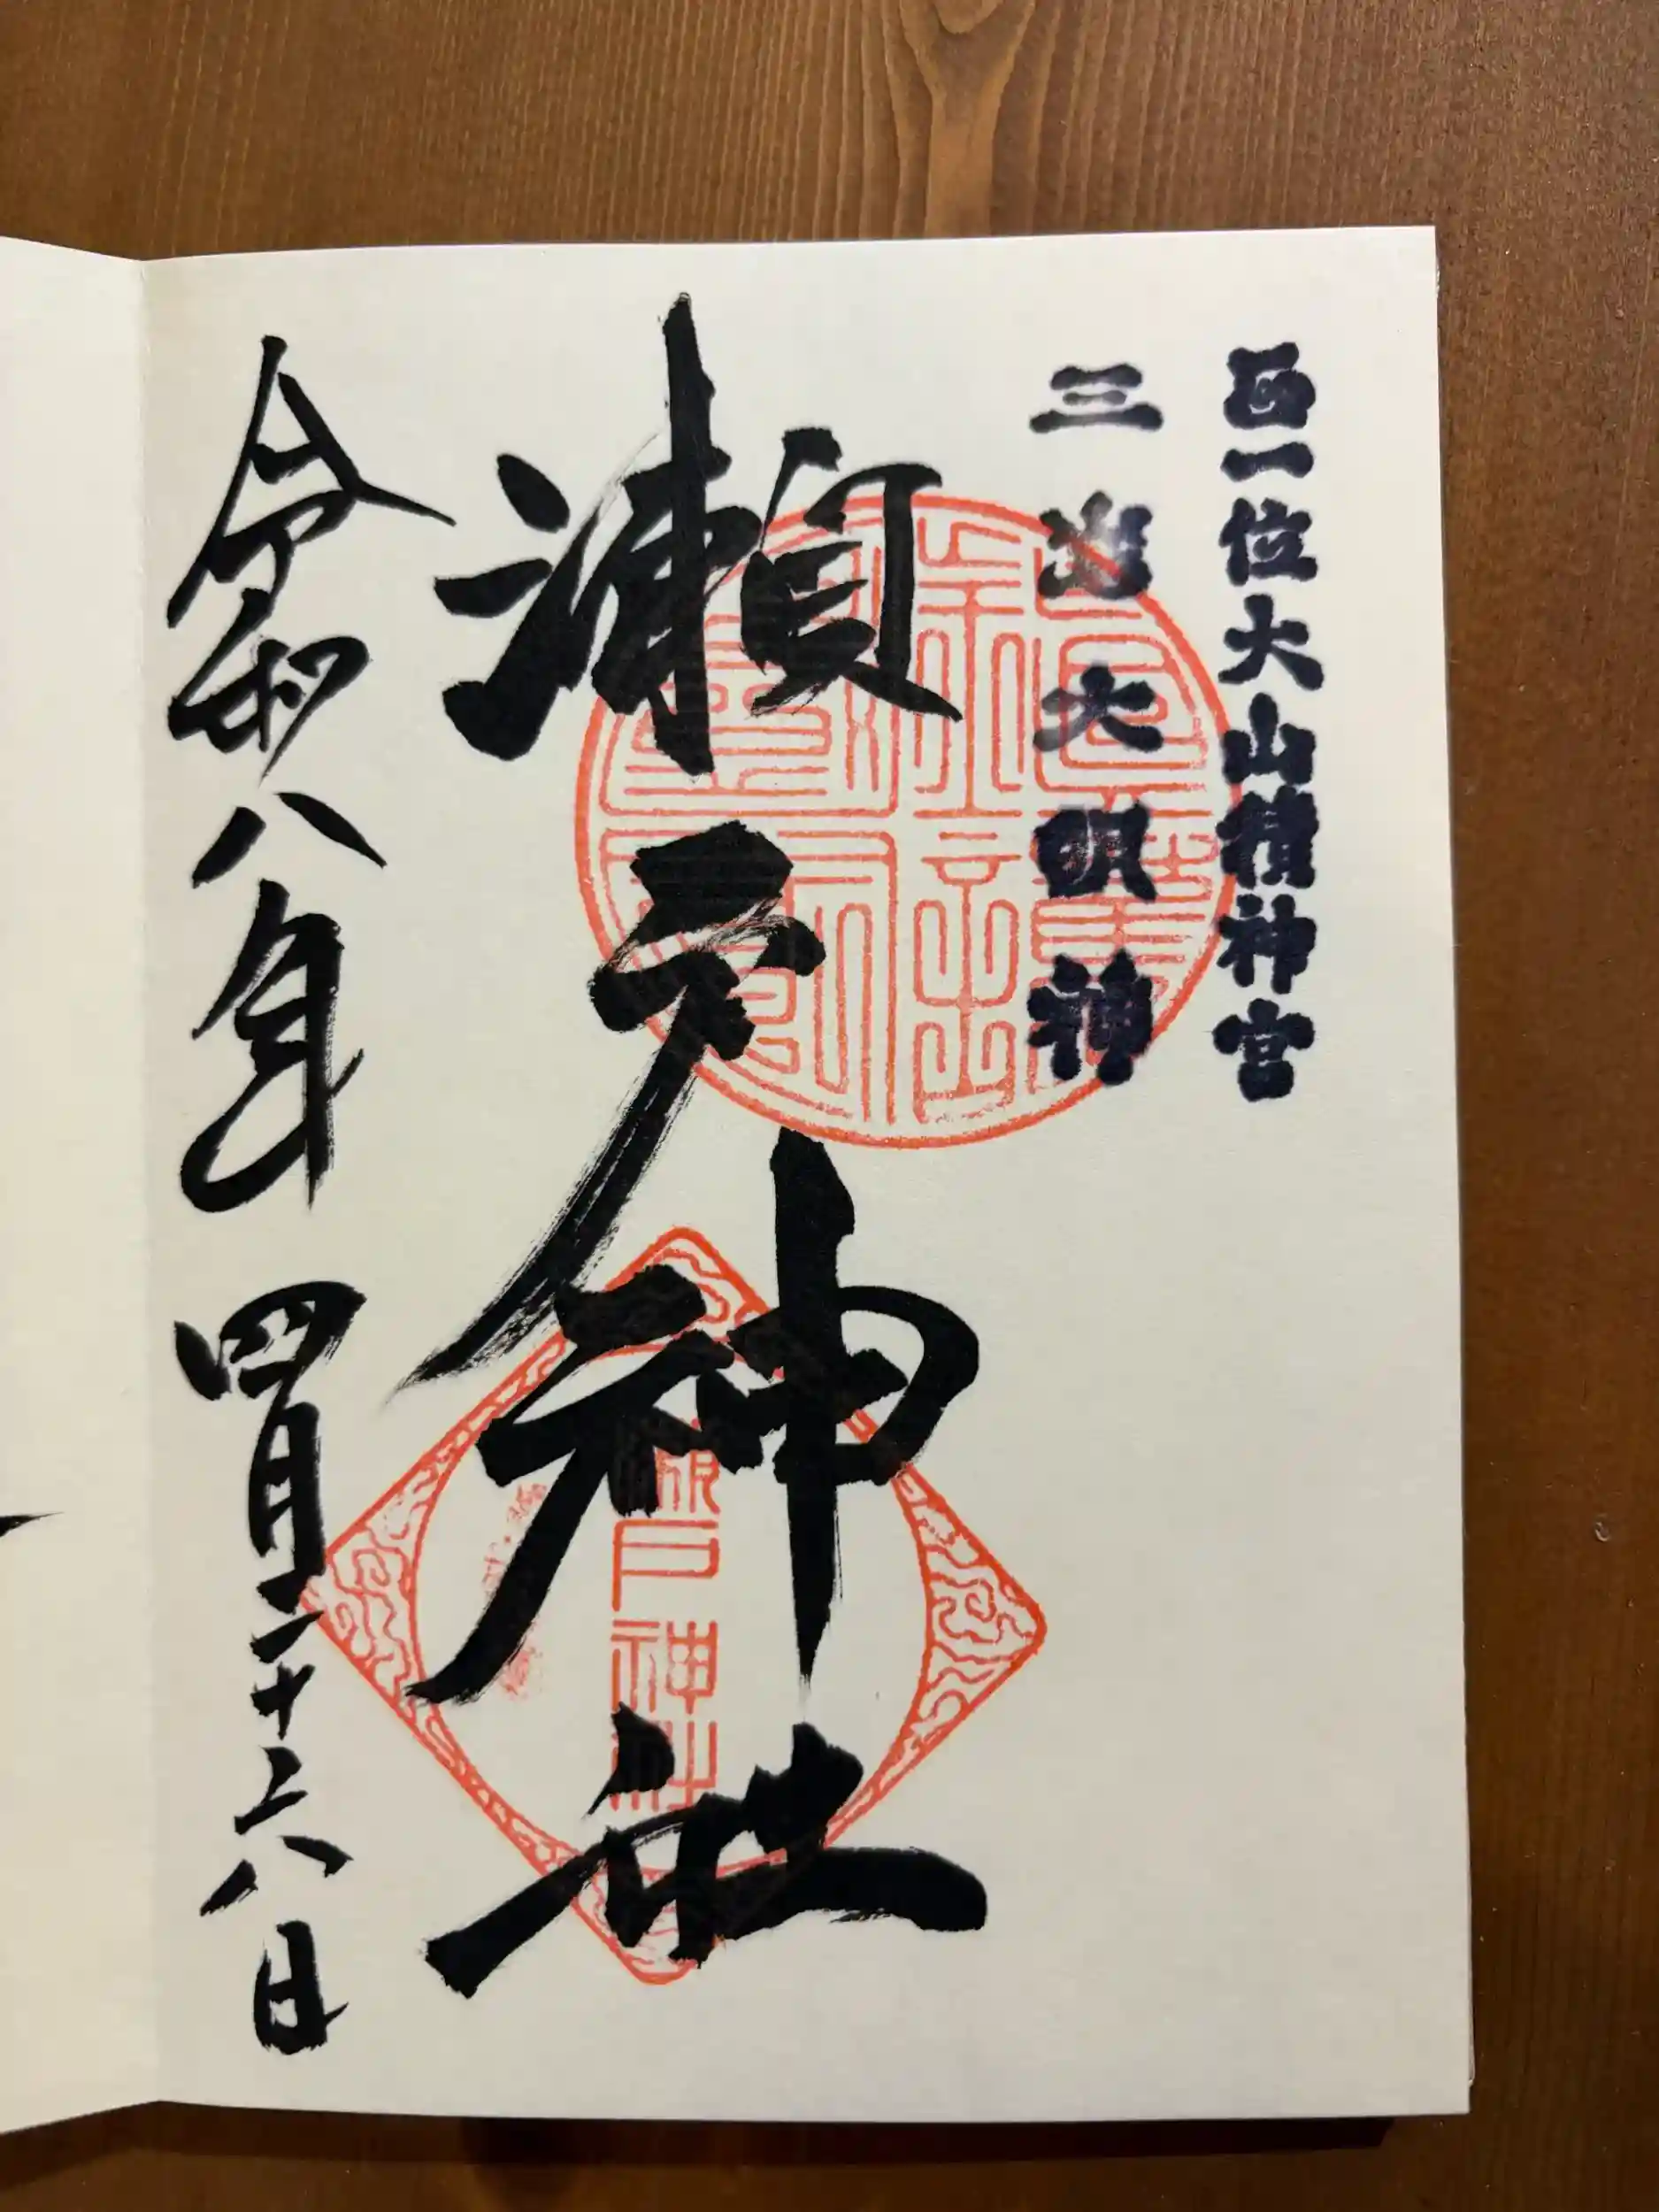 正一位大山積神宮
三島大明神
瀬戸神社
令和八年 四月二十六日
瀬戸神社